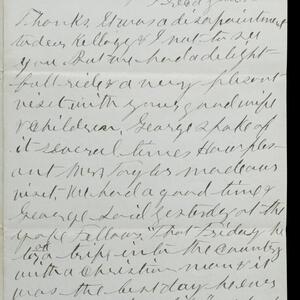 Thanks. It was a disapointment
to deer Kellogg & I not to see
you. But we had a delight
full ride & a very plesent
visit with your good wife
& Children. George spoke of
it several times How ples-
ant Mrs Taylor made our
visit. We had a good time &
George said yesterday at the
Fellows "That Friday he
took a trip into the Country
with a Christian man & it
was the best day he ever